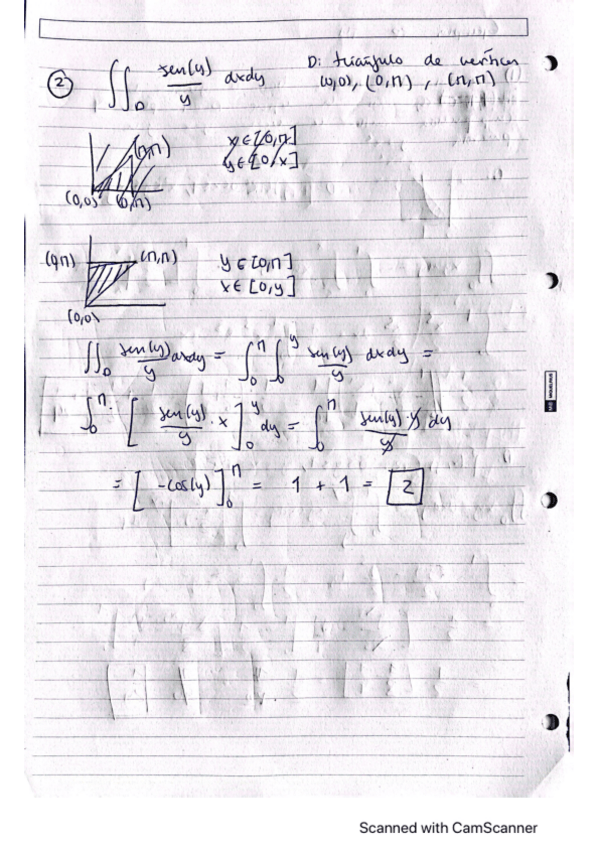 ② ∬_D sen(y)/y dxdy D: triángulo de vertices
(0,0), (0,π), (π,π)
(π,π) x∈[0,π]
y∈[0,x]
(0,0) (0,π)
(0,π) (π,π) y∈[0,π]
x∈[0,y]
(0,0)
∬_D sen(y)/y dxdy = ∫_0^π ∫_0^y sen(y)/y dxdy =
∫_0^π [ sen(y)/y · x ]_0^y dy = ∫_0^π sen(y)·y/y dy
= [ -cos(y) ]_0^π = 1 + 1 = 2
Scanned with CamScanner